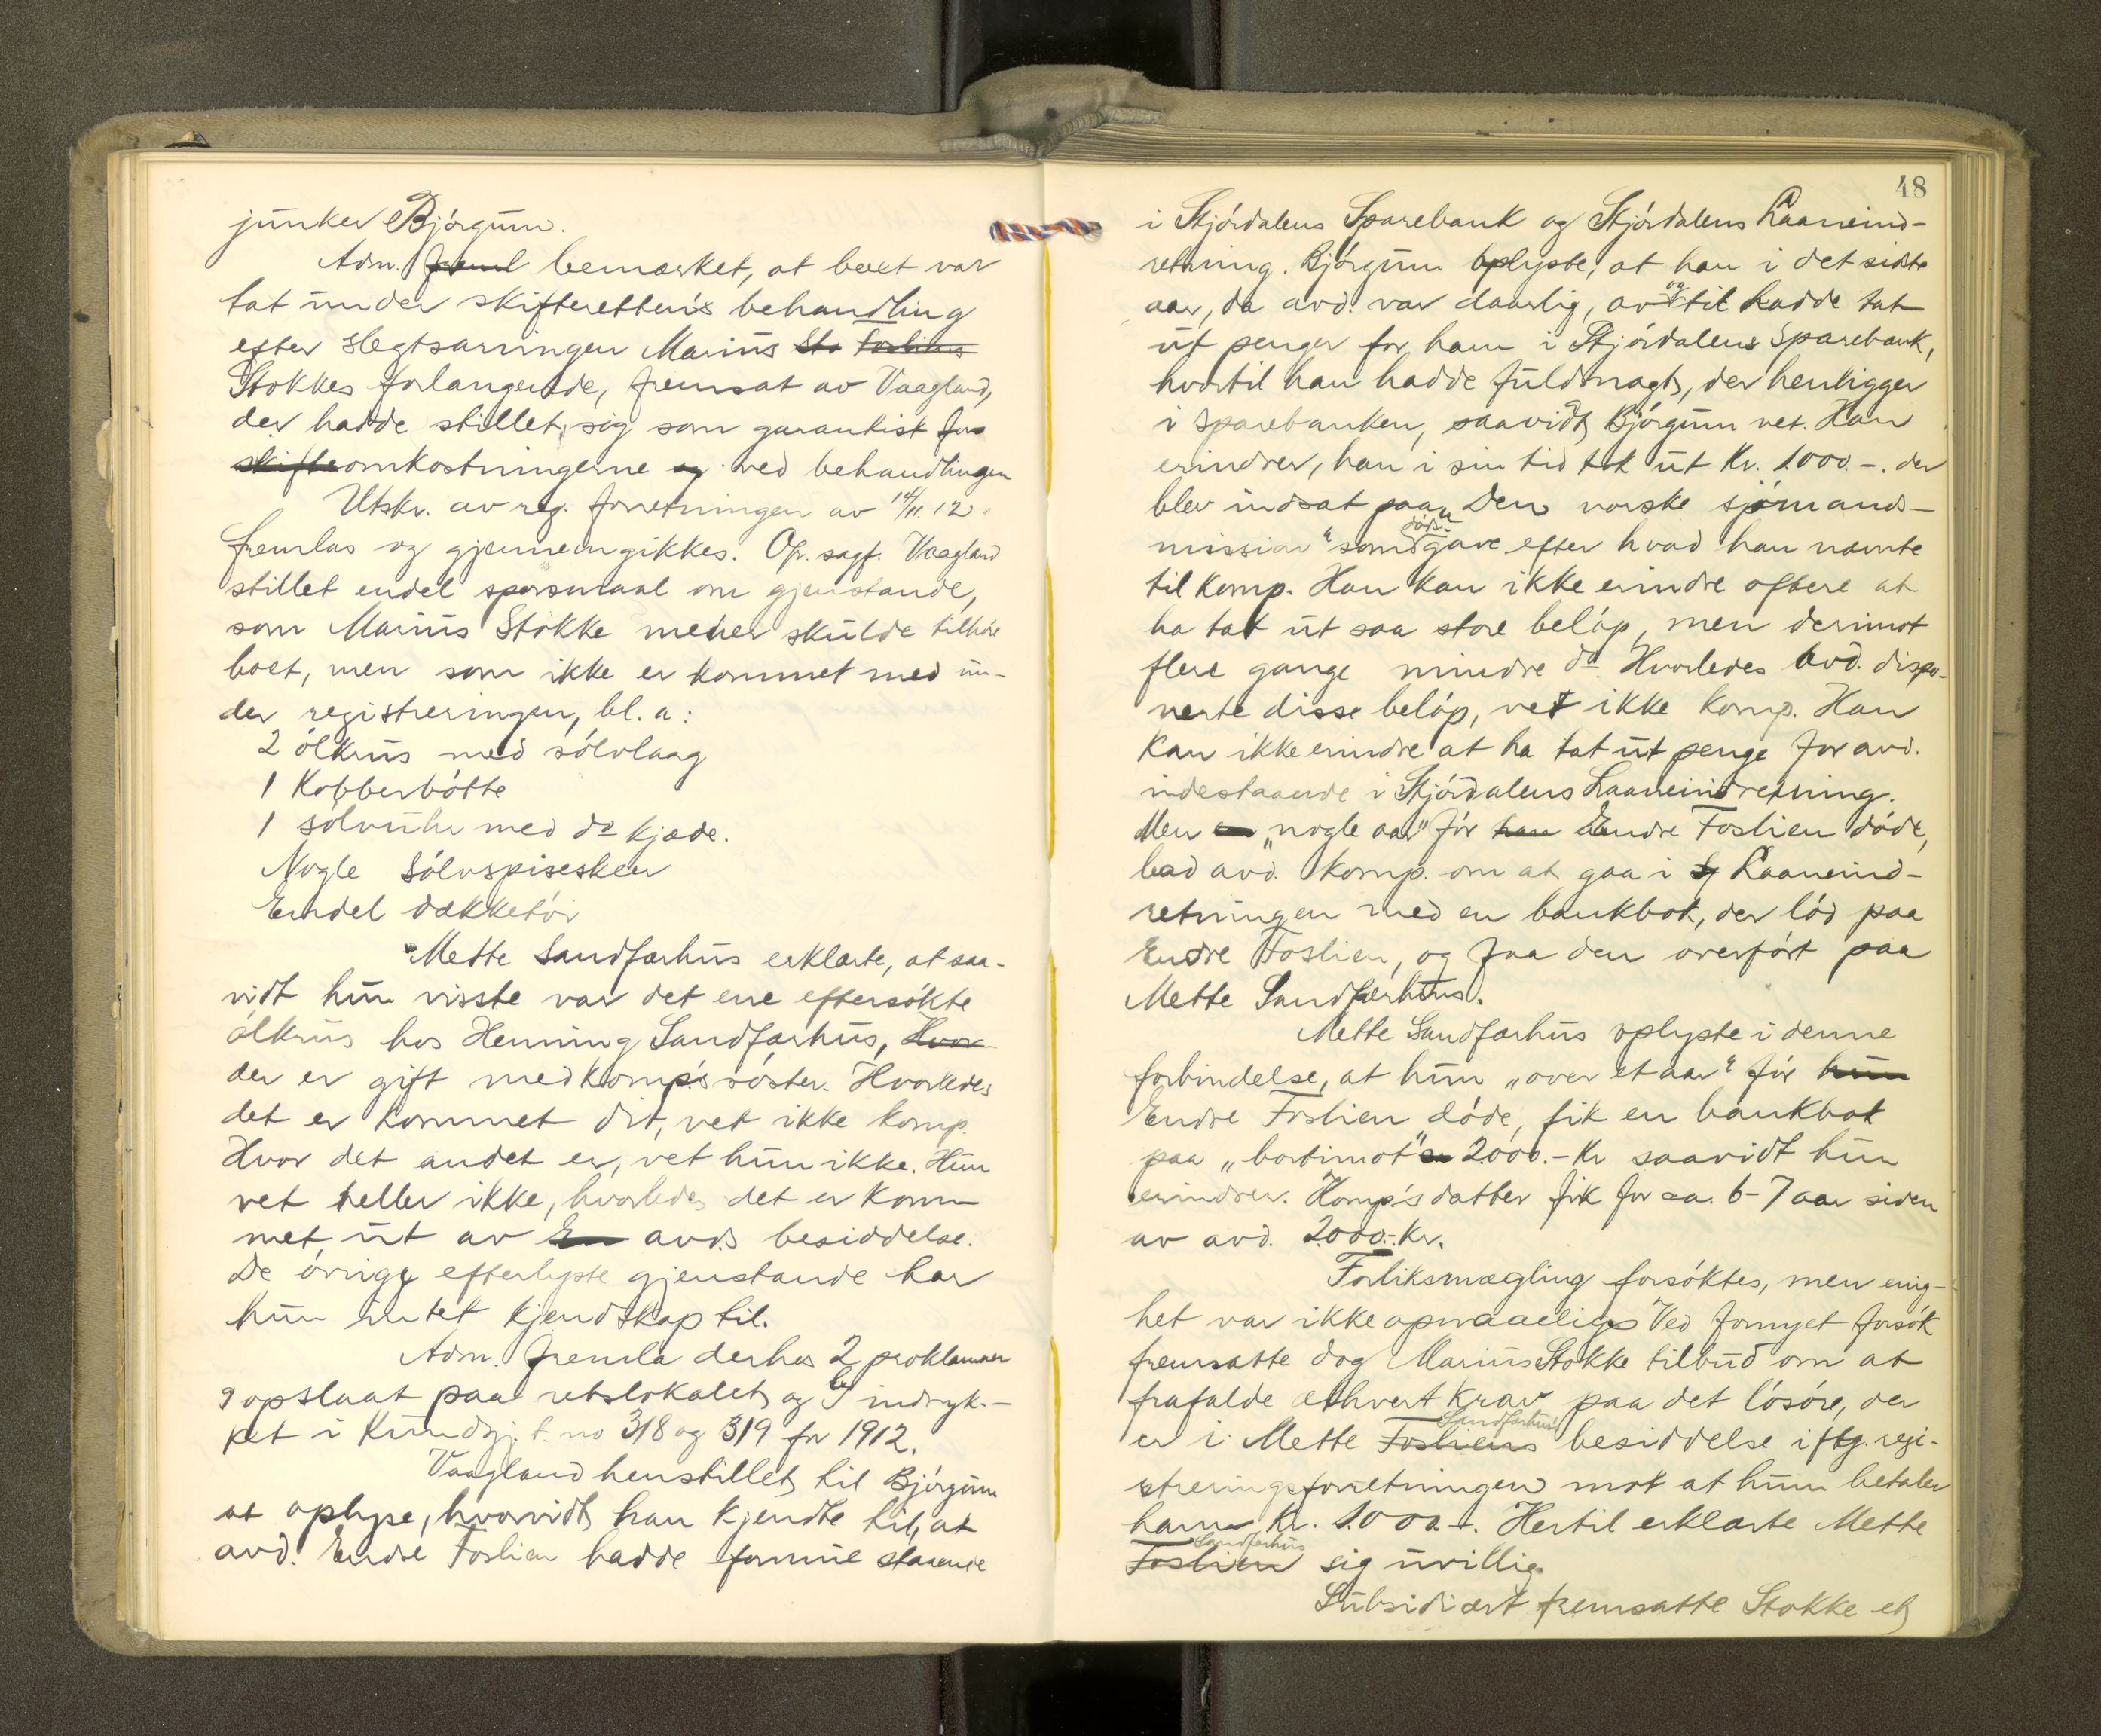 junker Bjórgum.
Adm. freml bemærket, at boet var
tat under skifterettens behandling
efter slegtsarvingen Marius Sto Fosliens
Stokkes forlangende, fremsat av Vaagland,
der hadde stillet sig som garantist for
skifteomkostningerne og ved behandlingen
Utskr. av reg. forretningen av 14/11. 12
fremlas og gjennemgikkes. Opr. sagf. Vaagland
stillet endel spørsmaal om gjenstande,
som Marius Stokke mener skulde tilhøre
boet, men som ikke er kommet med un-
der registreringen, bl. a:
2 ólkrus med sólvlaag
1 Kobberbótte
1 sólvuhr med do kjæde.
Nogle Sólvspiseskeer
Endel dækketói
Mette Sandfærhus erklærte, at saa-
vidt hun visste var det ene eftersókte
ólkrus hos Henning Sandfærhus, Hvor
der er gift med komp's sóster. Hvorledes
det er kommet dit, vet ikke komp.
Hvor det andet er, vet hun ikke. Hun
vet heller ikke, hvorledes det er kom-
met ut av En avd.s besiddelse.
De óvrige efterlyste gjenstande har
hun intet kjendskap til.
Adm. fremla derhos 2 proklamaer
opslaat paa retslokalet og indryk-
ket i Kundgj. t. no 318 og 319 for 1912.
Vaagland henstillet til Bjórgum
at oplyse, hvorvidt han kjendte til, at
avd. Endre Foslien hadde formue staaende
48
i Stjórdalens Sparebank og Stjórdalens Laaneind-
retning. Bjórgum oplyste, at han i det sidste
aar, da avd. var daarlig, av og til hadde tat
ut penger for ham i Stjórdalens Sparebank,
hvortil han hadde fuldmagt, der henligger
i Sparebanken, saavidt Bjórgum vet. Han
erindrer, han i sin tid tok ut Kr. 1000.-. der
blev indsat paa „Den norske sjómands-
mission" som døds-gave efter hvad han nævnte
til komp. Han kan ikke erindre oftere at
ha tat ut saa store belóp, men derimot
flere gange mindre do. Hvorledes avd. dispo-
nerte disse belóp, vet ikke komp. Han
kan ikke erindre at ha tat ut penge for avd.
indestaaende i Stjórdalens Laaneindretning.
Men en „nogle aar" fór han Endre Foslien dóde,
bad avd. komp. om at gaa i Sj Laaneind-
retningen med en bankbok, der lód paa
Endre Foslien, og faa den overfórt paa
Mette Sandfærhus.
Mette Sandfærhus oplyste i denne
forbindelse, at hun „over et aar" fór hun
Endre Foslien dóde, fik en bankbok
paa „bortimot" en 2000.- Kr saavidt hun
erindrer. Komp's datter fik for ca. 6-7 aar siden
av avd. 2000.-. Kr.
Forliksmægling forsóktes, men enig-
het var ikke opnaaelig. Ved fornyet forsók
fremsatte dog Marius Stokke tilbud om at
frafalde ethvert krav paa det lósóre, der
er i Mette Fosliens Sandfærhus' besiddelse iflg. regi-
streringsforretningen mot at hun betaler
ham Kr. 1000.-. Hertil erklærte Mette
Foslien Sandfærhus sig uvillig.
Subsidiært fremsatte Stokke et